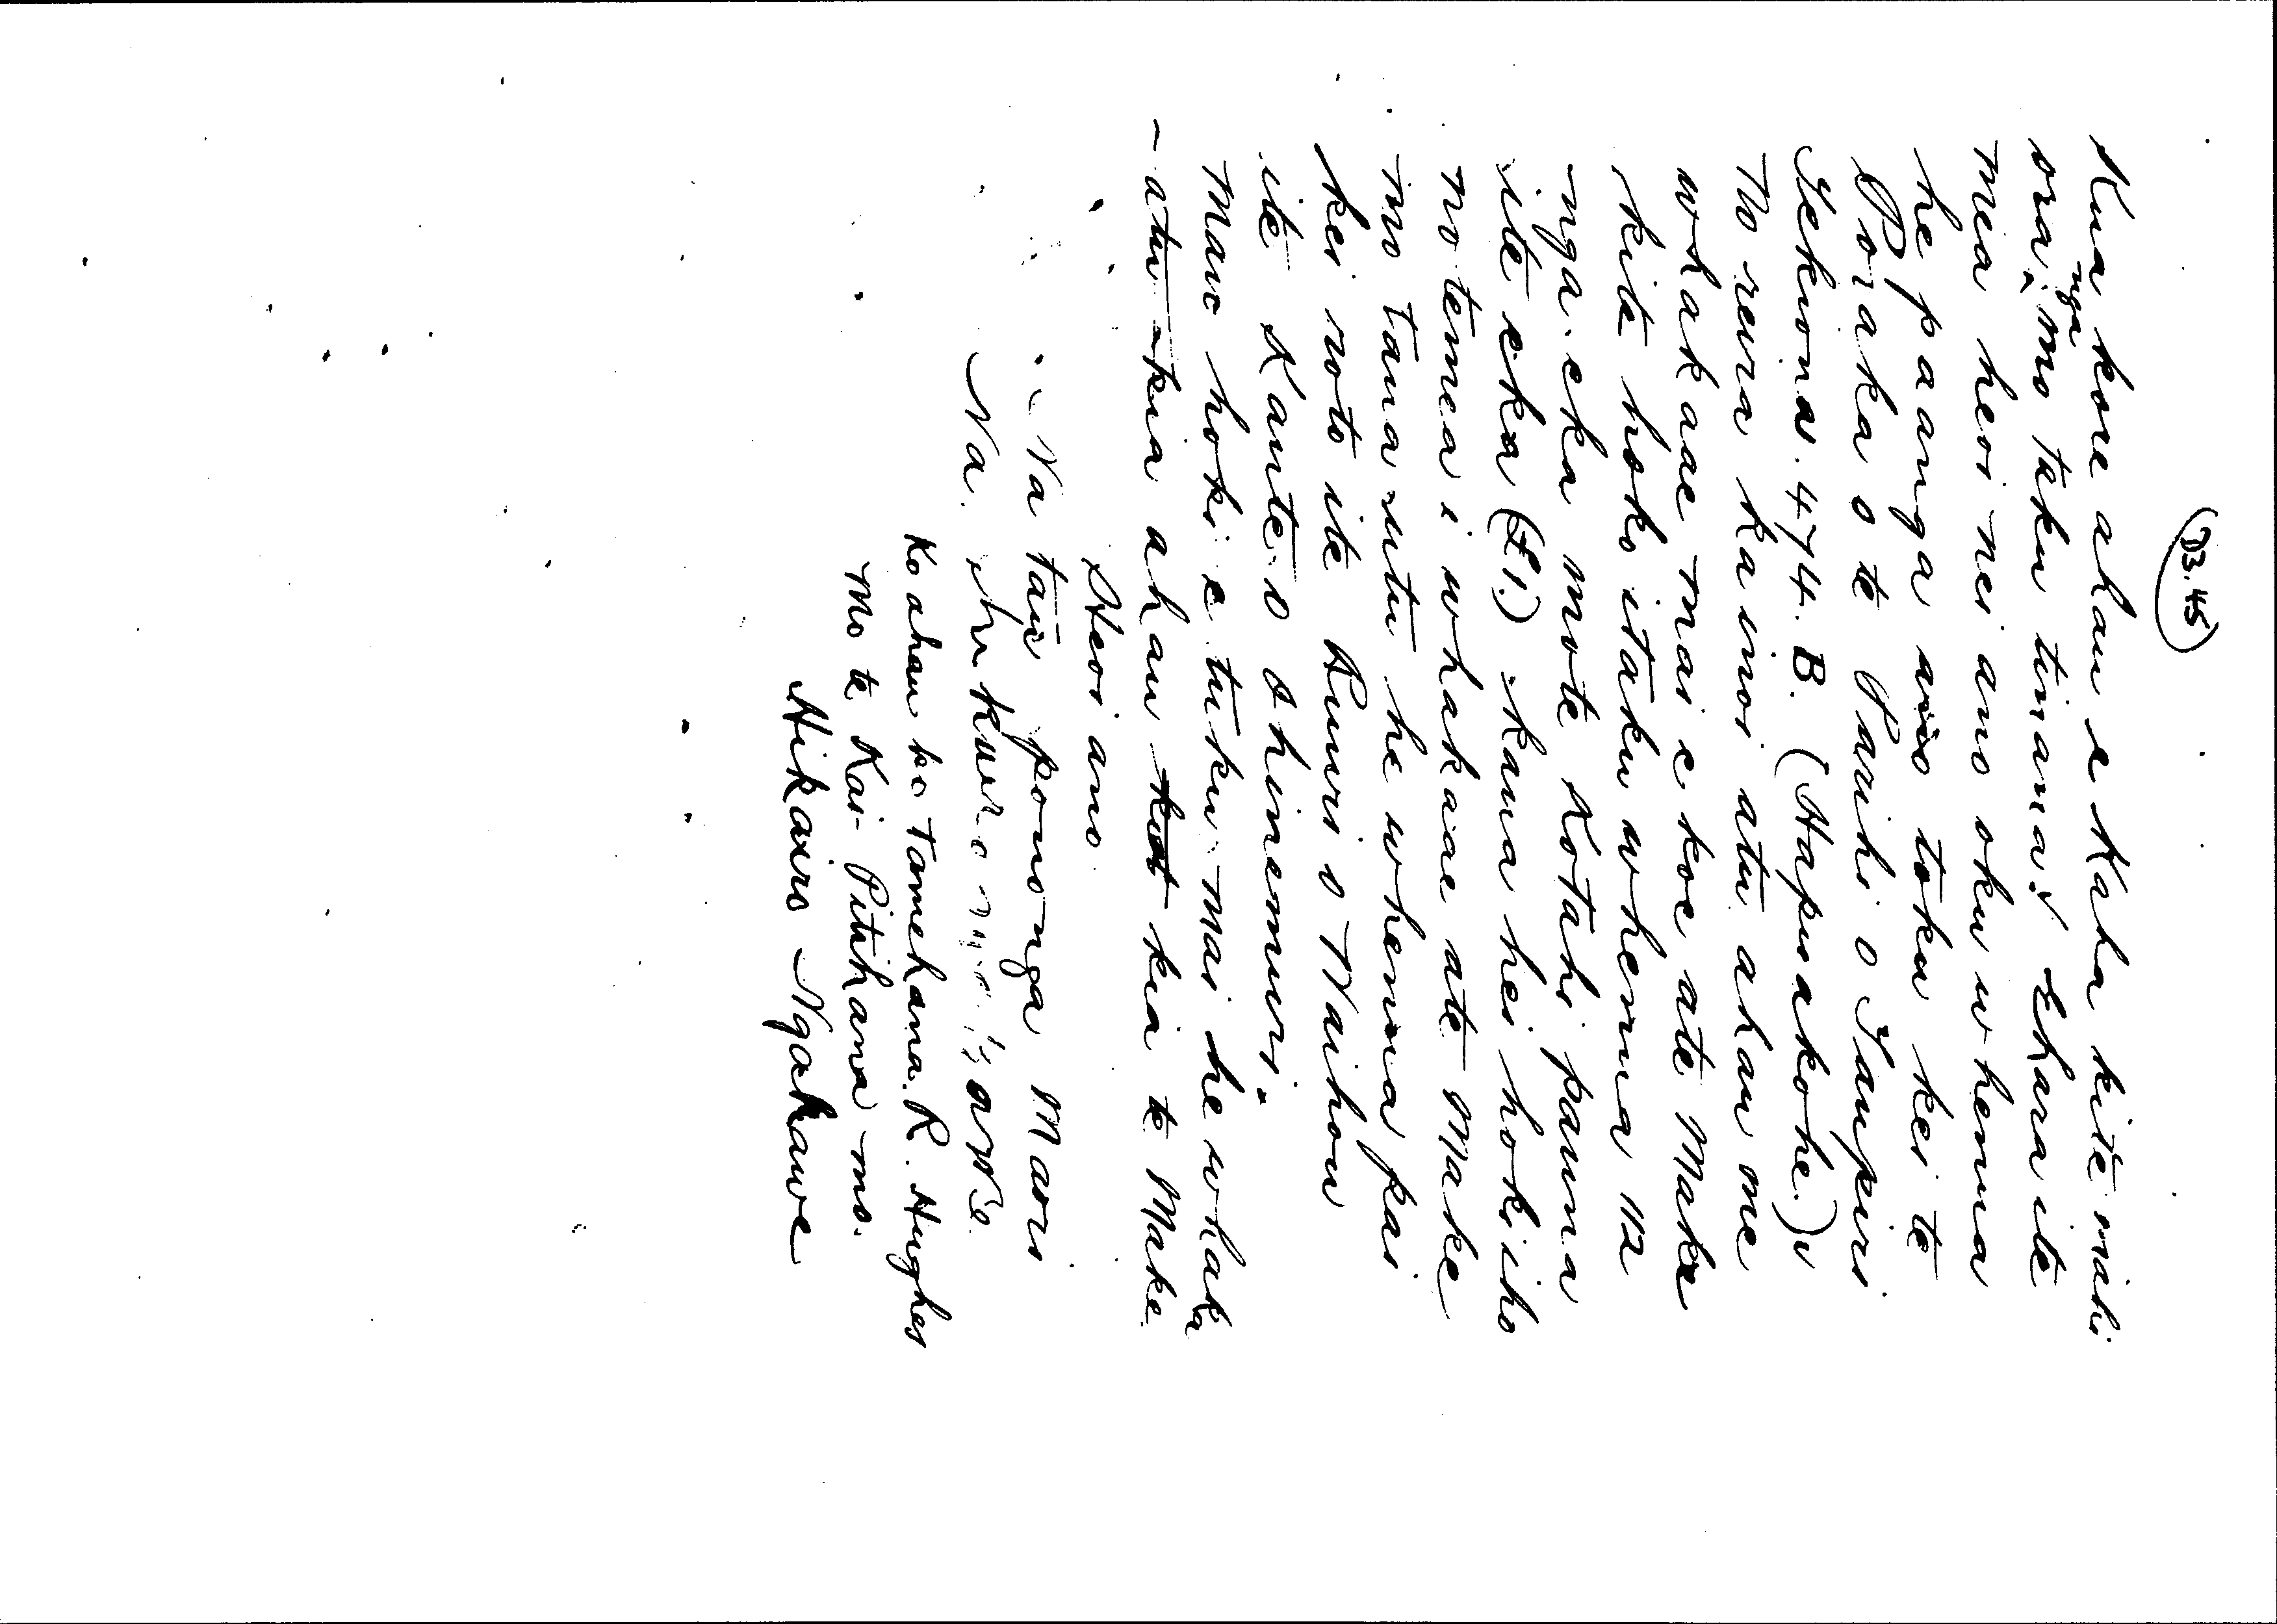 B.45
Kua kore ahau e Kaha kite mahi
oranga mo taku tinana. Ehara ite
mea hei nei ano oku whenua
he paanga ano toku kei te
Poraka o te Parihi o Taupiri
Hekiona. 474. B. (Hapuakohe.)
No reira ka inoi atu ahau me
whakaae mai e koe ate Make
kite hoko itaku whenua 112
nga eka mote Kotahi pauna
ite eka (£1.) kaua hei hoki iho
no temea i whakaae ate Make
mo tana utu he whenua pai
kei roto ite Ruuri o Waihou
ite Kaute o Ohinemuri.
Mau hoki e tuku mai he whaka
-atu kia ahau kia te Make.
Heoi ano
Na tau pononga Maori
Na.
Ko ahau ko Tamehana. R. Hughes
Mo te Kai-Pitihana mo.
Hikairo Ngakawe